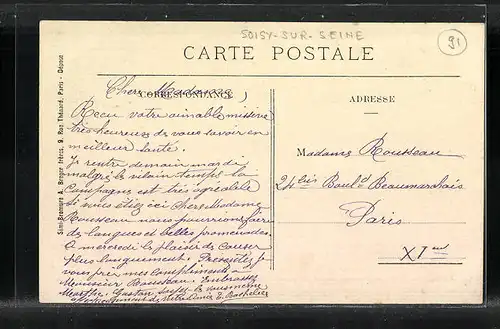 SOISY-SUR-SEINE
91
CARTE POSTALE
CORRESPONDANCE
Chère Madame,
Recu votre aimable missive
très heureuses de vous savoir en
meilleur santé.
Je rentre demain mardi
malgré le vilain temps la
campagne est très agréable
si vous étiez ici Chère Madame
Rousseau nous pourrions faire
de longues et belles promenades.
A mercredi le plaisir de causer
plus longuement. Présentez je
vous prie mes compliments à
Monsieur Rousseau. Embrassez
Marthe, Gaston
de votre
ADRESSE
Madame Rousseau
24bis Boulᵈ Beaumarchais
Paris
XIᵐᵉ
Simi-Bromure A. Breger Frères, 9, Rue Thénard, Paris - Déposé